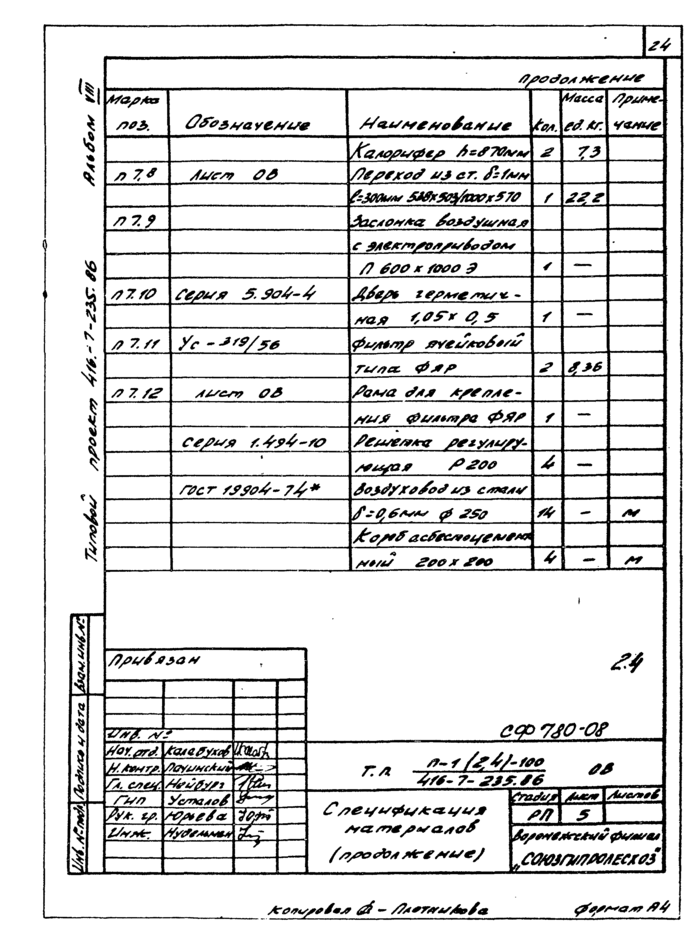 24
продолжение
Марка поз. Обозначение Наименование Кол. Масса ед. кг. Приме-чание
Калорифер h=870мм 2 7,3
п 7.8 Лист ОВ Переход из ст. δ=1мм
ℓ=300мм 538х503/1000х570 1 22,2
п 7.9 Заслонка воздушная
с электроприводом
П 600 х 1000 Э 1 —
п 7.10 Серия 5.904-4 Дверь герметич-
ная 1,05 х 0,5 1 —
п 7.11 Ус - 319/56 Фильтр ячейковый
типа ФЯР 2 8,36
п 7.12 Лист ОВ Рама для крепле-
ния фильтра ФЯР 1 —
Серия 1.494-10 Решетка регулиру-
ющая Р 200 4 —
ГОСТ 19904-74* Воздуховод из стали
δ=0,6мм ф 250 14 — м
Короб асбестоцемент
ный 200 х 200 4 — м
Альбом VIII
Типовой проект 416-7-235.86
Взам. инв. №
Подпись и дата
Инв. № подл.
Привязан
Инв. №
2.4
СФ 780-08
Нач. отд. Калабухов
Н. контр. Пачинский
Гл. спец. Нейбург
ГИП Усталов
Рук. гр. Юрьева
Инж. Нудельман
Т. п. п-1 (2,4)-100 ОВ
416-7-235.86
Спецификация
материалов
(продолжение)
Стадия Лист Листов
РП 5
Воронежский филиал
„СОЮЗГИПРОЛЕСХОЗ"
Копировал Ф - Плотникова Формат А4